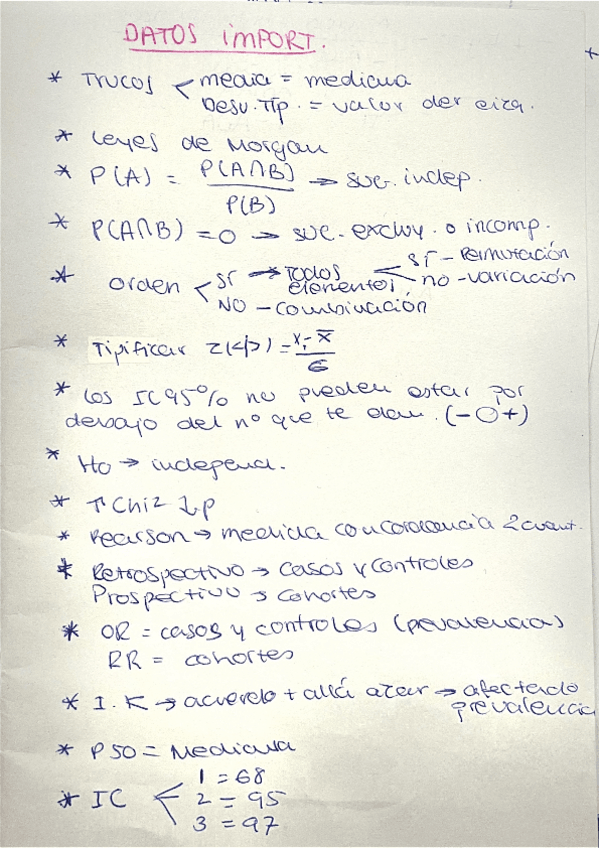 DATOS IMPORT.
* Trucos < media = mediana
Desv. Típ. = valor der eiza.
* Leyes de Morgan
* P(A) = P(A∩B) / P(B) → suc. indep.
* P(A∩B) = 0 → suc. excluy. o incomp.
* orden < SÍ → Todos elementos < SÍ - Permutación
no - variación
NO - combinación
* Tipificar z(</>) = xi - x̄ / σ
* Los IC95% no pueden estar por
debajo del nº que te dan. (- 0 +)
* Ho → independ.
* ↑ Chi2 ↓p
* Pearson → medida concordancia 2 cuant.
* Retrospectivo → casos y controles
Prospectivo → cohortes
* OR = casos y controles (prevalencia)
RR = cohortes
* I.K → acuerdo + allá azar → afectado
prevalencia
* P50 = Mediana
* IC < 1 = 68
2 = 95
3 = 97